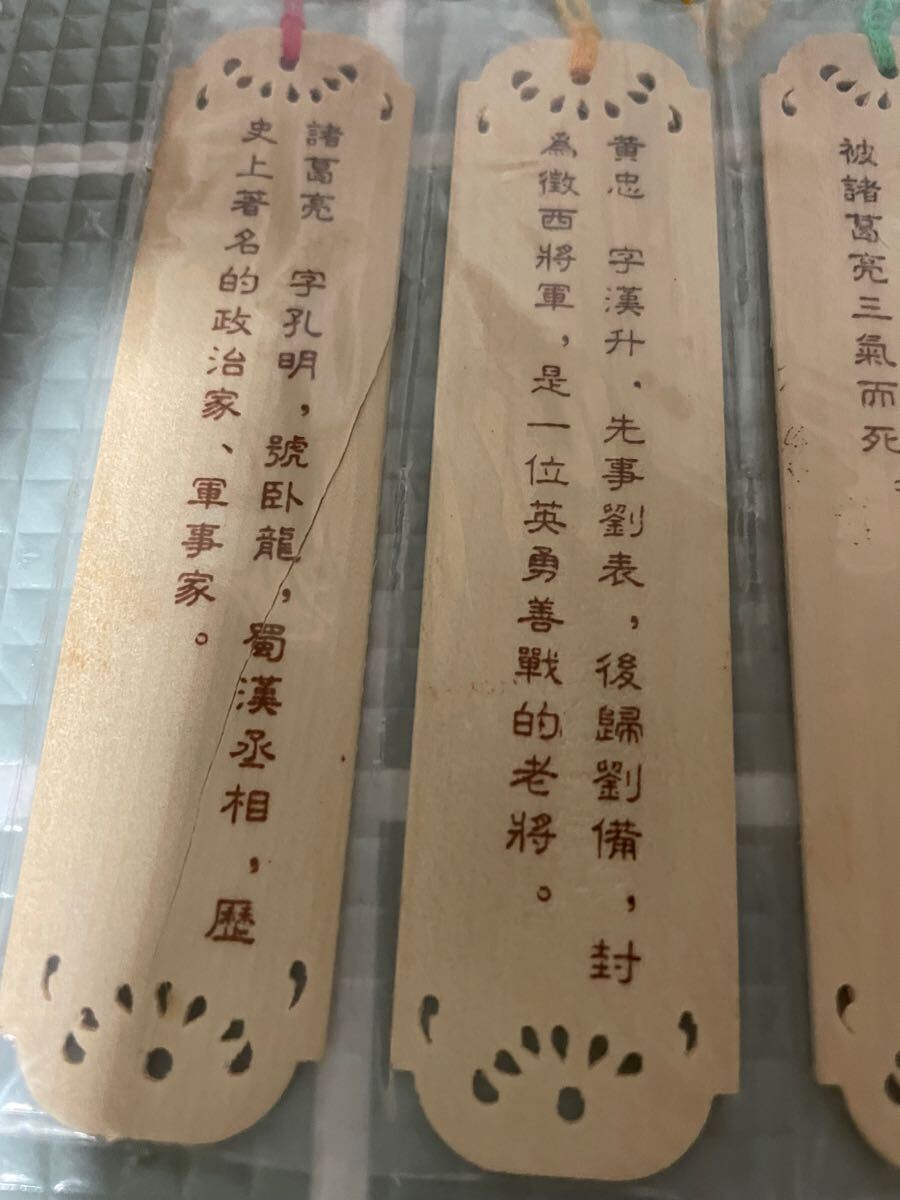 諸葛亮 字孔明，號臥龍，蜀漢丞相，歷
史上著名的政治家、軍事家。
黃忠 字漢升．先事劉表，後歸劉備，封
為徵西將軍，是一位英勇善戰的老將。
被諸葛亮三氣而死